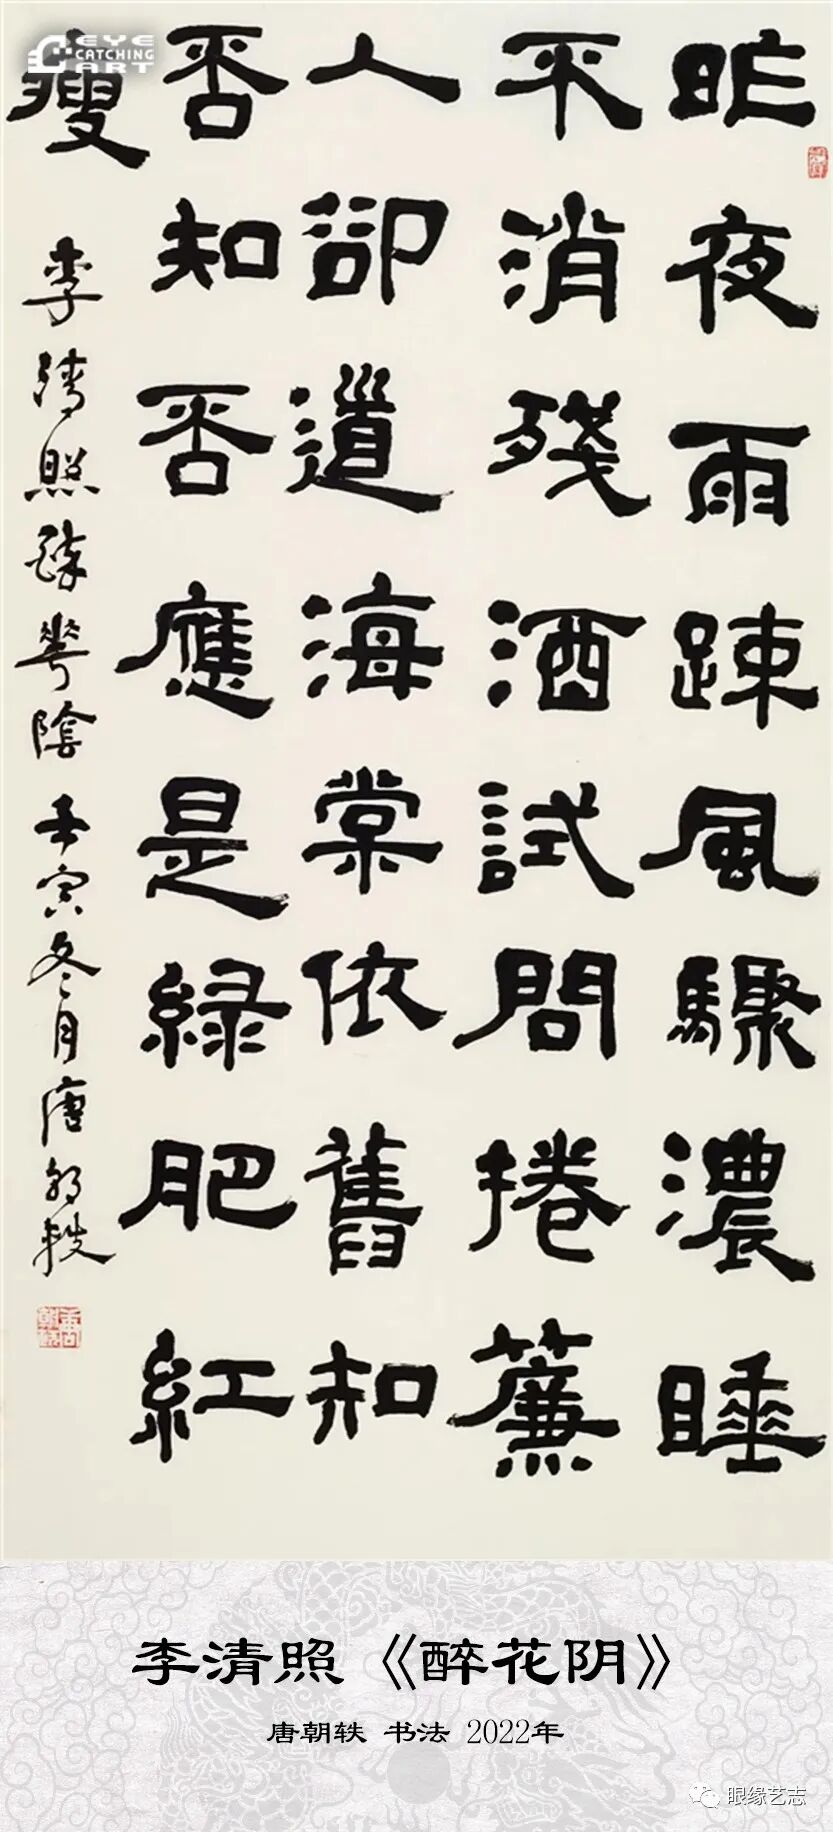 EYE
CATCHING
ART
昨夜雨踈風驟濃睡
不消殘酒試問捲簾
人卻道海棠依舊知
否知否應是緑肥紅
瘦 李清照醉華陰 壬寅冬月唐朝軼
李清照《醉花阴》
唐朝轶 书法 2022年
眼缘艺志